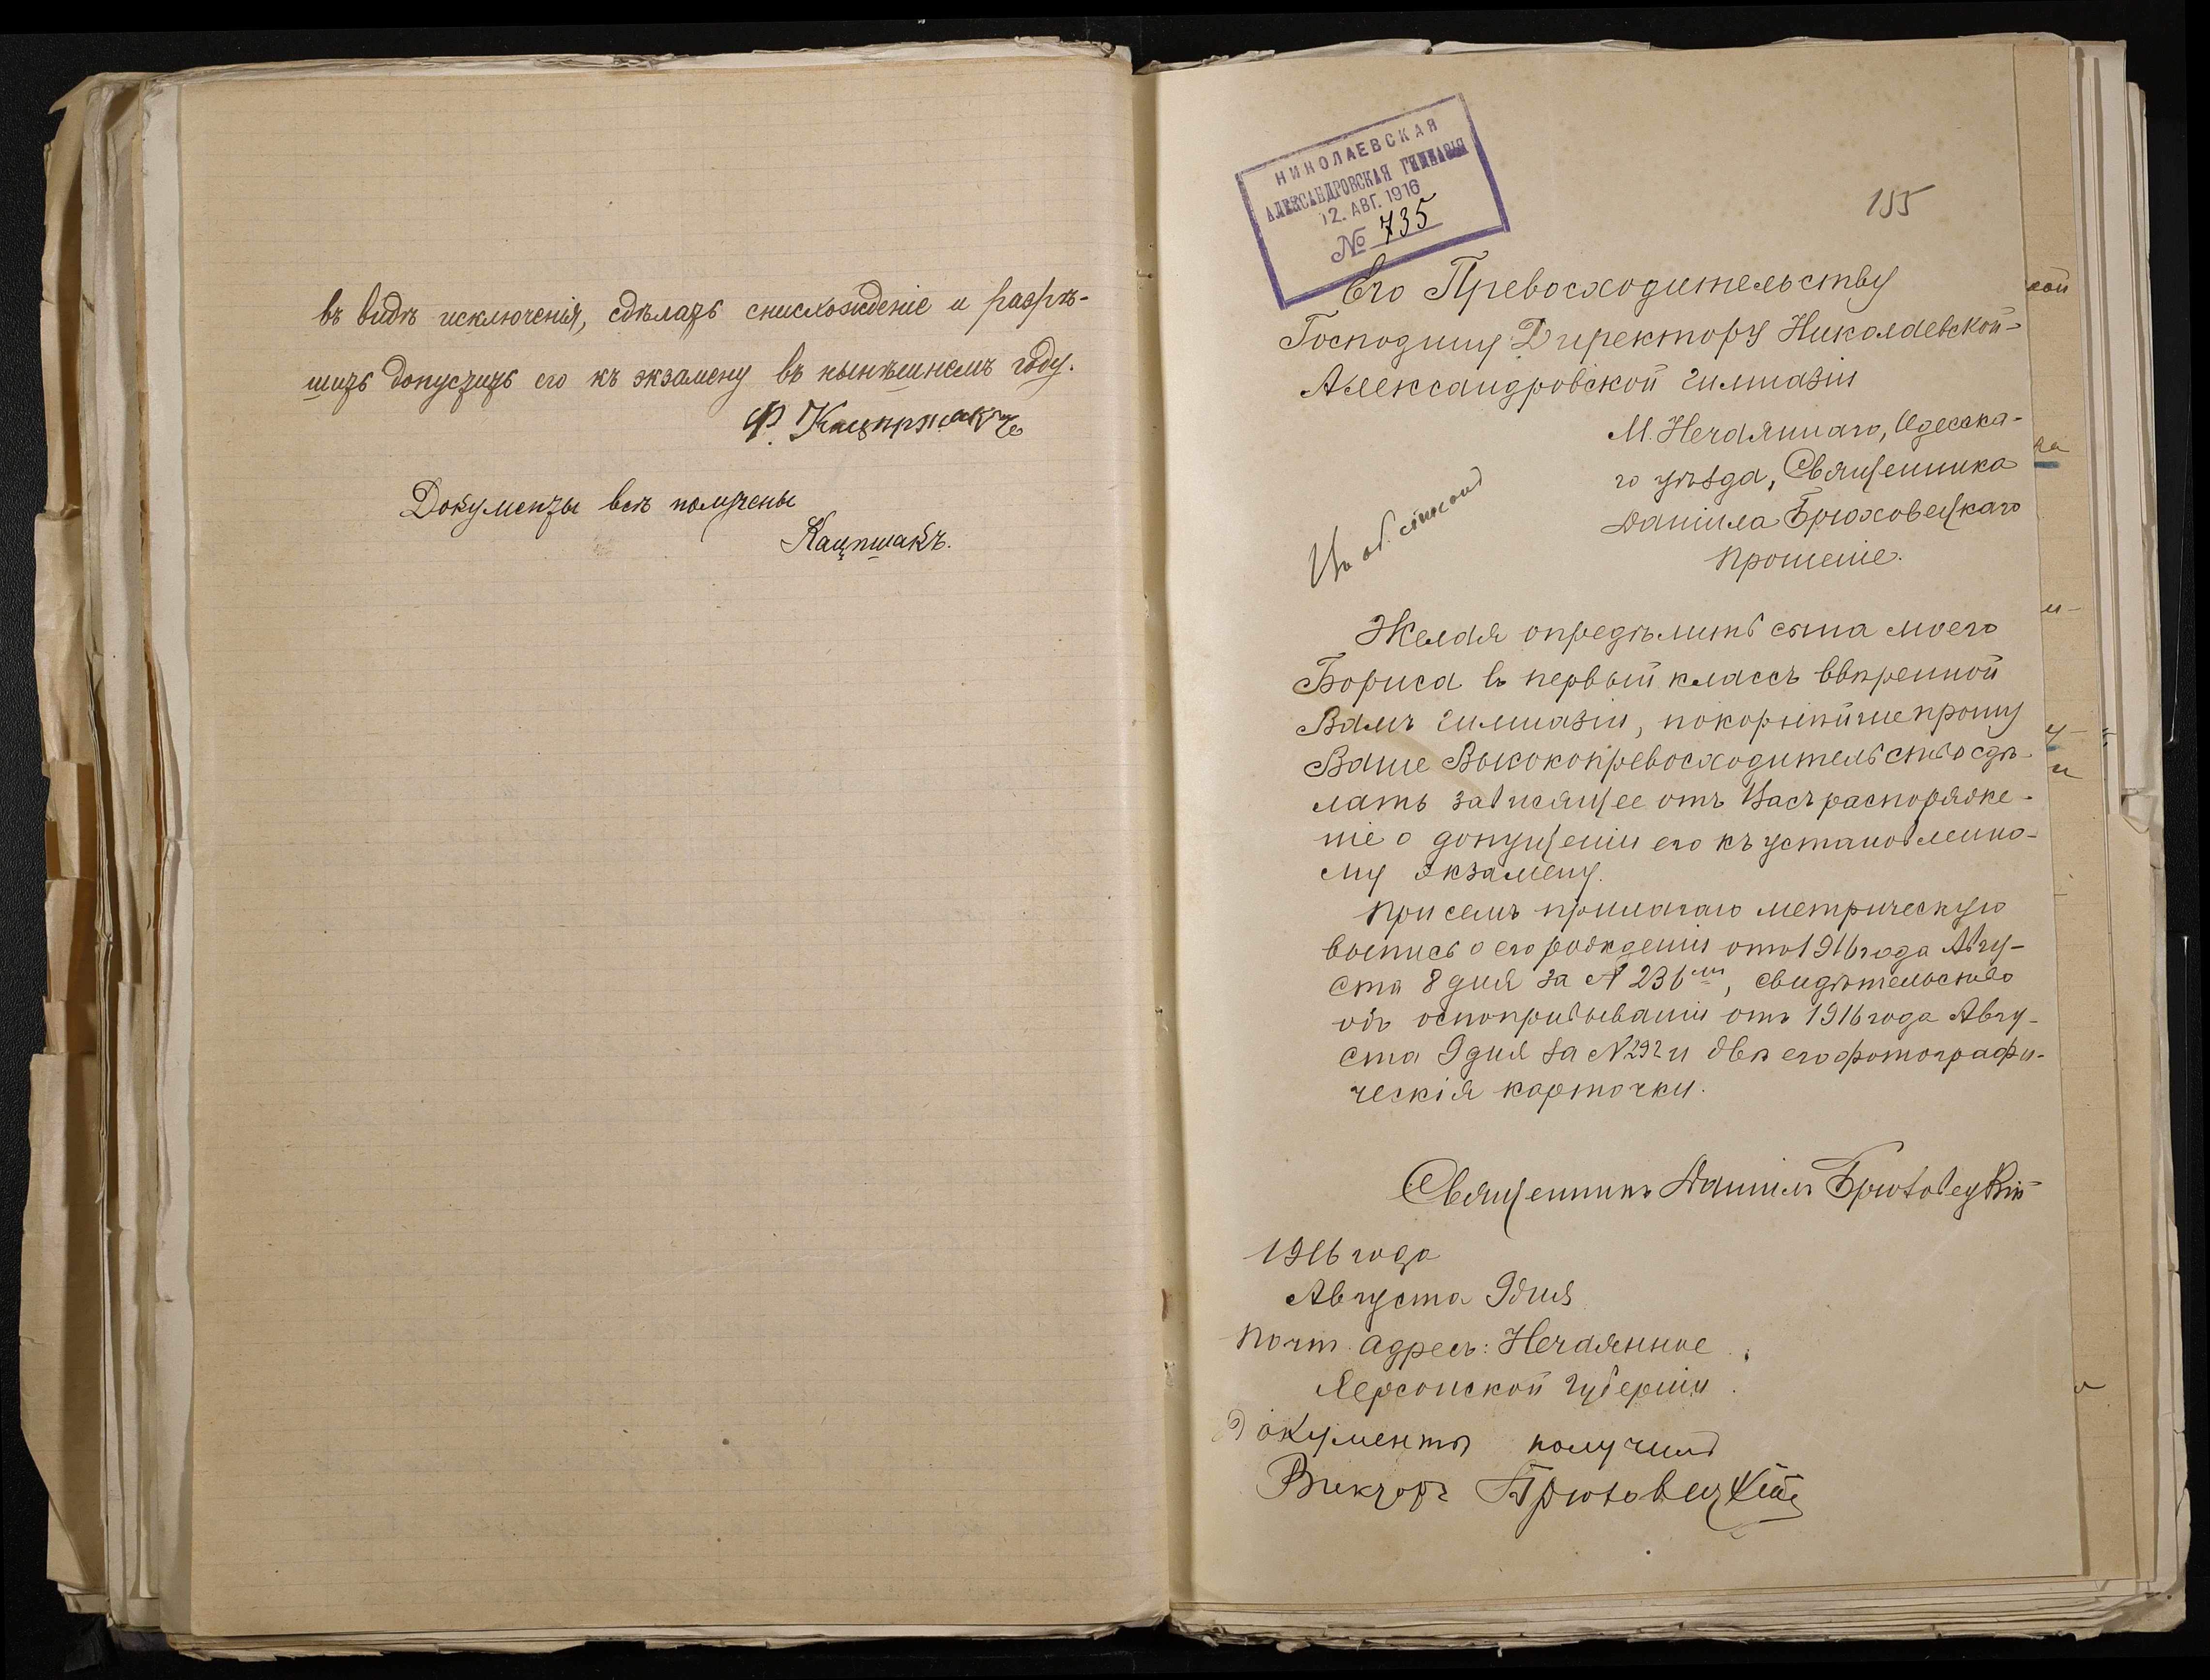 въ видѣ исключенія, сдѣлать снисхожденіе и разрѣ-
шить допустить его къ экзамену въ нынѣшнемъ году.
Ф.
Документы всѣ получены
Кацпшакъ.
НИКОЛАЕВСКАЯ
АЛЕКСАНДРОВСКАЯ ГИМНАЗІЯ
12. АВГ. 1916
№ 735
155
Его Превосходительству
Господину Директору Николаевской-
Александровской гимназіи
М. Нечаяннаго, Одесска-
го уѣзда, Священника
Даніила Брюховецкаго
Прошеніе.
Желая опредѣлить сына моего
Бориса въ первый классъ ввѣренной
Вамъ гимназіи, покорнѣйше прошу
Ваше Высокопревосходительство сдѣ-
лать зависящее отъ Васъ распоряже-
ніе о допущеніи его къ установленно-
му экзамену.
При семъ прилагаю метрическую
выпись о его рожденіи отъ 1916 года Авгу-
ста 8 дня за № 236, свидѣтельство
объ оспопрививаніи отъ 1916 года Авгу-
ста 9 дня за № 292 и двѣ его фотографи-
ческія карточки.
Священникъ Даніилъ Брюховецкій
1916 года
Августа 9 дня
Почт. адресъ: Нечаянное
Херсонской губерніи.
Документы получилъ
Викторъ Брюховецкій